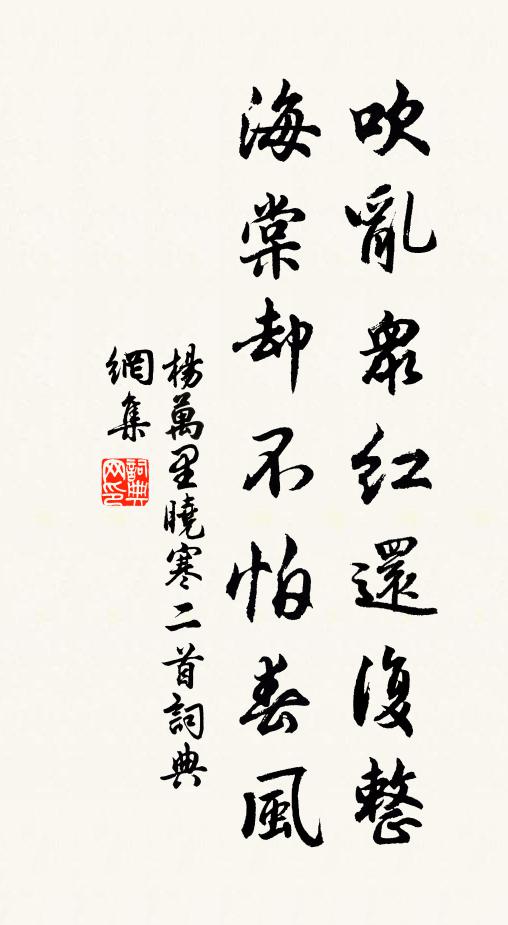 吹亂眾紅還復整
海棠却不怕春風
楊萬里曉寒二首詞典
網集
詞典网印